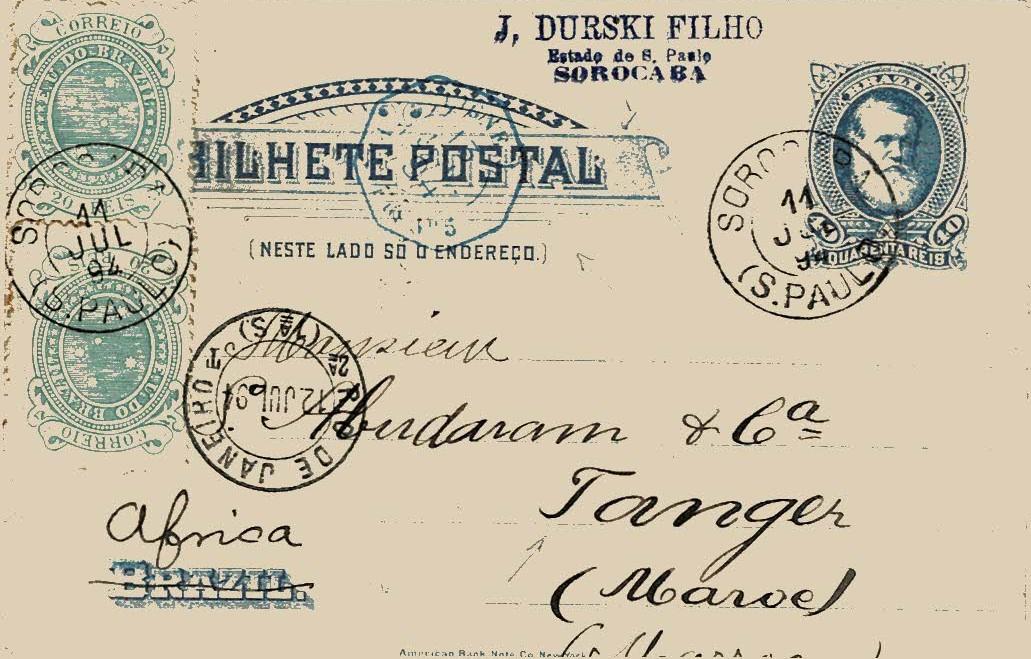 J. DURSKI FILHO
Estado de S. Paulo
SOROCABA
CORREIO
EAU DO BRAZIL
20 REIS
BILHETE POSTAL
(NESTE LADO SÓ O ENDEREÇO.)
SOROCABA
11
JUL
94
(S. PAULO)
20 REIS
EAU DO BRAZIL
CORREIO
SOROCABA
11
94
(S. PAULO)
40
QUARENTA REIS
DE JANEIRO
12 JUL 94
2A
Monsieur
& Ca
Tanger
Africa
BRAZIL.
(Maroc)
American Bank Note Co. New York